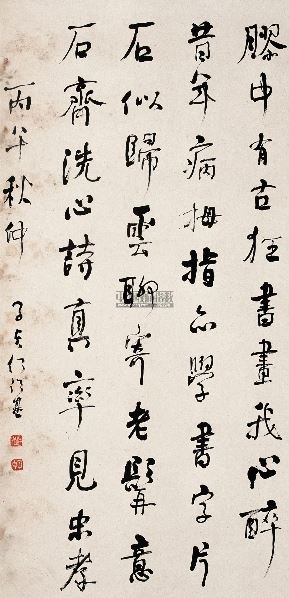 膠中有古狂書畫我心醉
昔年病拇指亦學書字片
石似歸雲聊寄老髯意
石齊洗心詩真率見忠孝
丙午秋仲